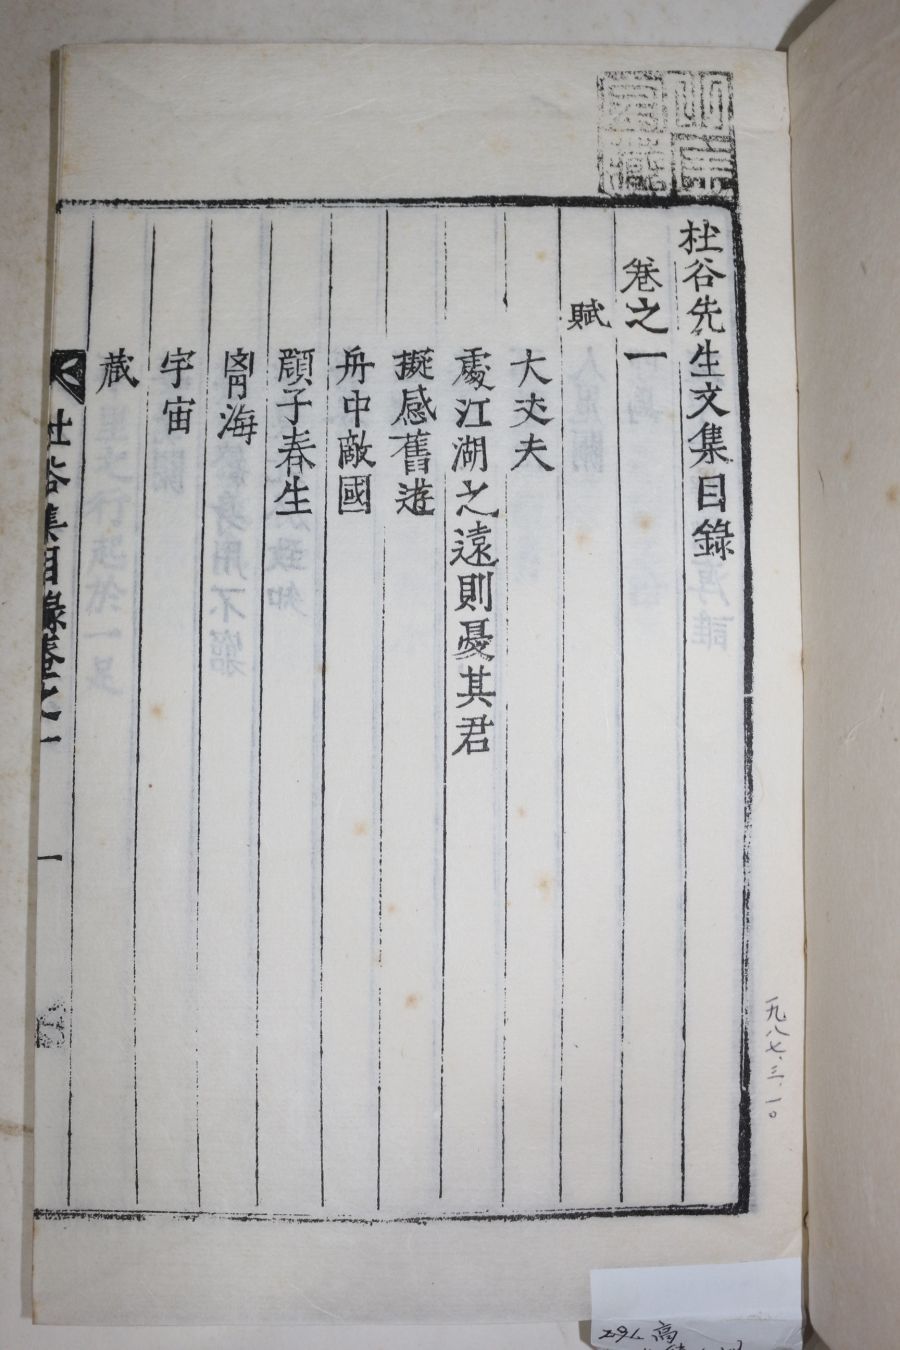 杜谷先生文集目錄
卷之一
賦
大丈夫
處江湖之遠則憂其君
擬感舊遊
舟中敵國
顔子春生
胷海
宇宙
蔵
杜谷集目錄卷之一
一
一九八七.三.一〇
296 高